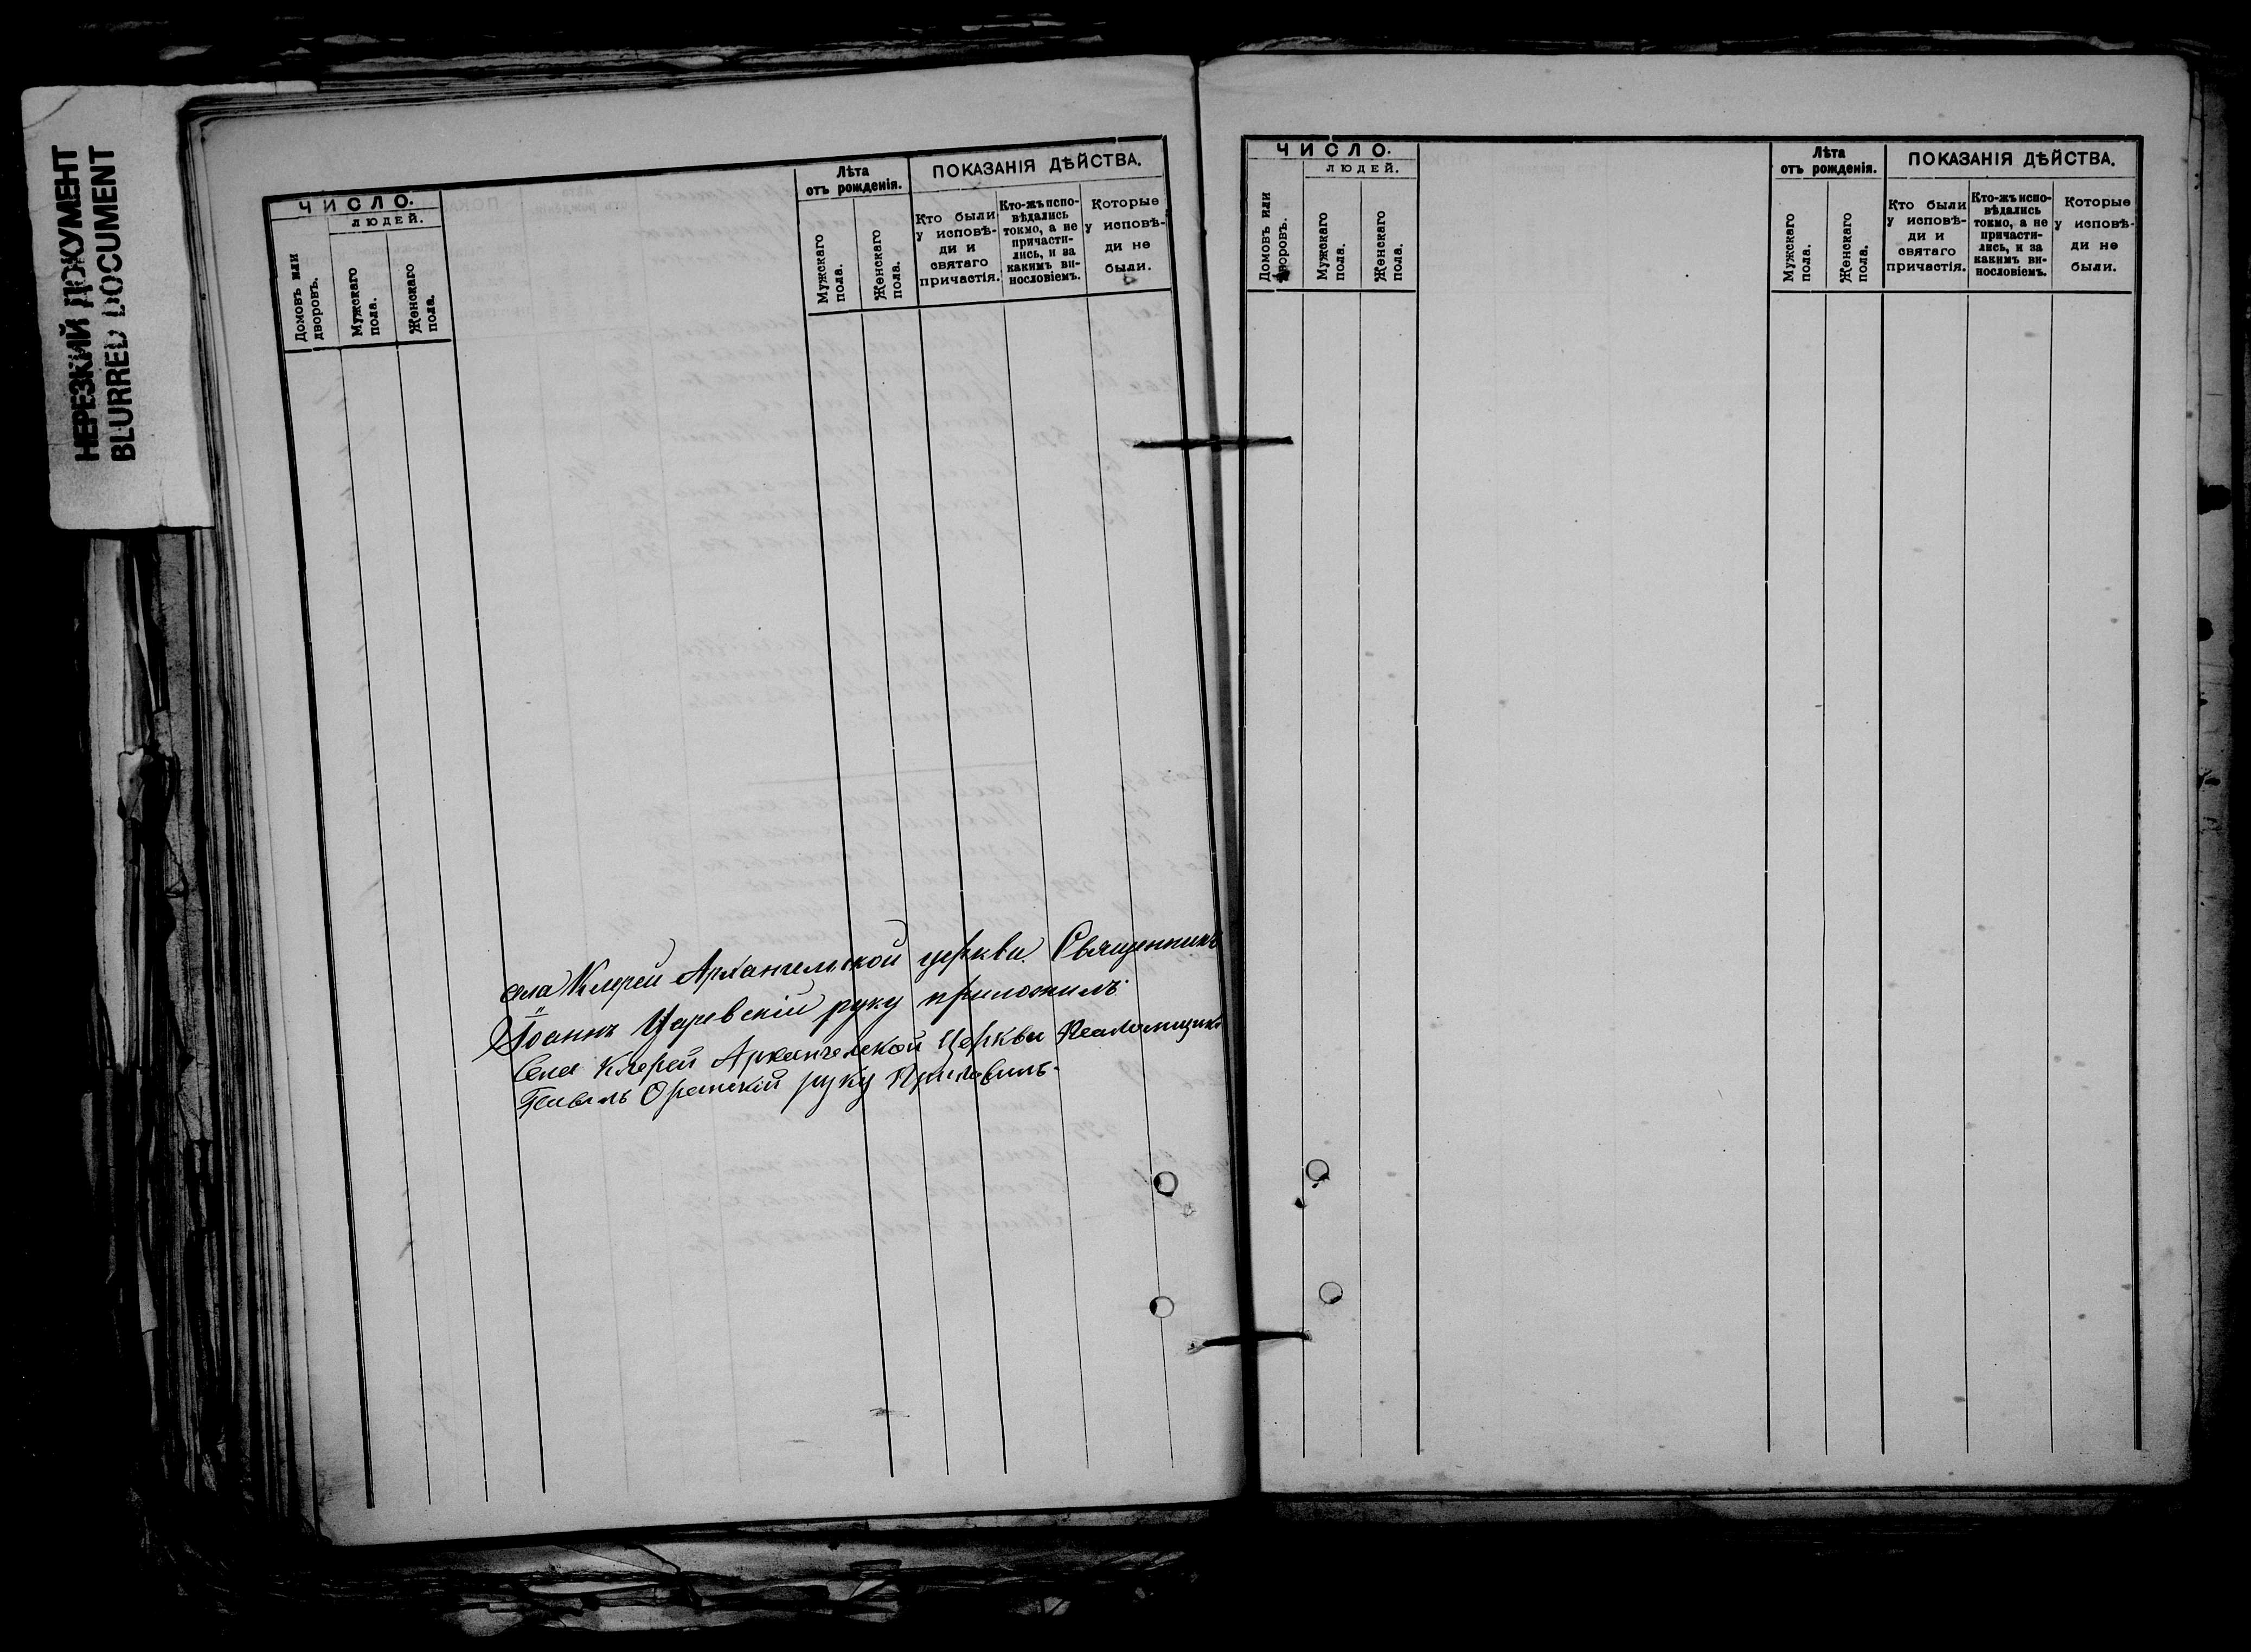 НЕРЕЗКИЙ ДОКУМЕНТ
BLURRED DOCUMENT
ЧИСЛО.
ЛЮДЕЙ.
Домовъ или
дворовъ.
Мужскаго
пола.
Женскаго
пола.
Лѣта
отъ рожденія.
Мужскаго
пола.
Женскаго
пола.
ПОКАЗАНІЯ ДѢЙСТВА.
Кто были
у исповѣ-
ди и
святаго
причастія.
Кто-жъ испо-
вѣдались
токмо, а не
причасти-
лись, и за
какимъ ви-
нословіемъ.
Которые
у исповѣ-
ди не
были.
села Клерей Архангельской церкви Священникъ
Іоаннъ Царевскій руку приложилъ
Села Клерей Архангелской Церкви Псаломщикъ
руку
ЧИСЛО.
ЛЮДЕЙ.
Домовъ или
дворовъ.
Мужскаго
пола.
Женскаго
пола.
Лѣта
отъ рожденія.
Мужскаго
пола.
Женскаго
пола.
ПОКАЗАНІЯ ДѢЙСТВА.
Кто были
у исповѣ-
ди и
святаго
причастія.
Кто-жъ испо-
вѣдались
токмо, а не
причасти-
лись, и за
какимъ ви-
нословіемъ.
Которые
у исповѣ-
ди не
были.